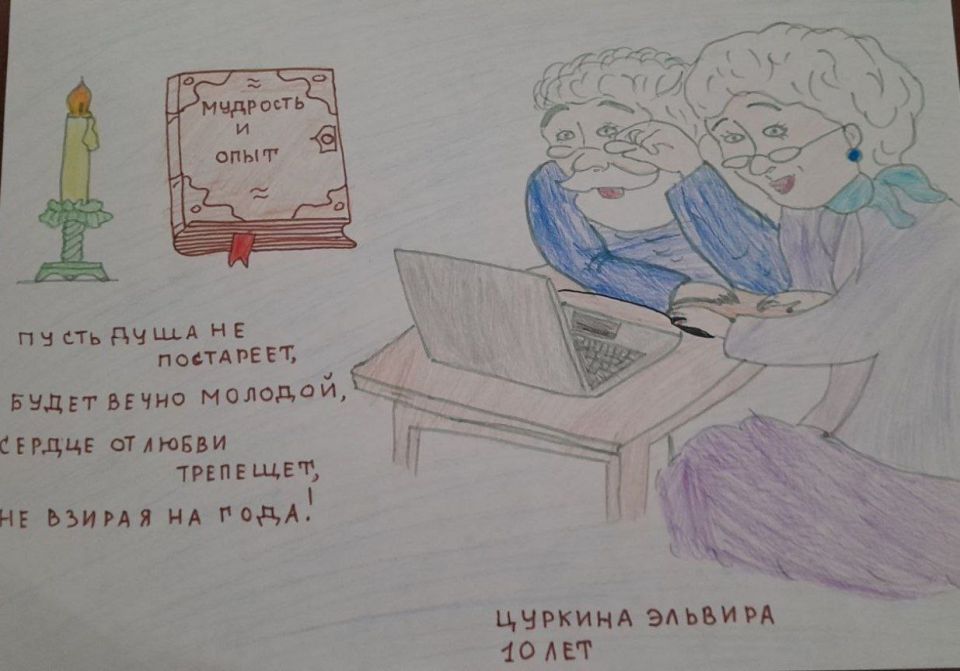 МУДРОСТЬ
И
ОПЫТ
ПУСТЬ ДУША НЕ
ПОСТАРЕЕТ,
БУДЕТ ВЕЧНО МОЛОДОЙ,
СЕРДЦЕ ОТ ЛЮБВИ
ТРЕПЕЩЕТ,
НЕ ВЗИРАЯ НА ГОДА!
ЦУРКИНА ЭЛЬВИРА
10 ЛЕТ